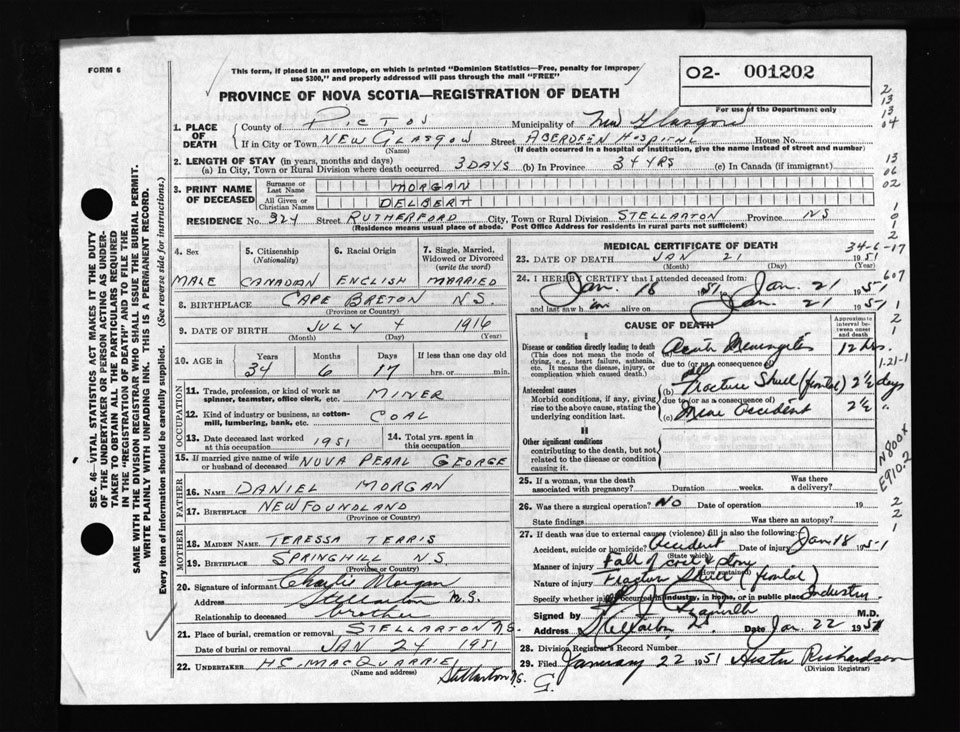 FORM 6
This form, if placed in an envelope, on which is printed "Dominion Statistics—Free, penalty for improper
use $300," and properly addressed will pass through the mail "FREE"
PROVINCE OF NOVA SCOTIA—REGISTRATION OF DEATH
02- 001202
For use of the Department only
SEC. 46—VITAL STATISTICS ACT MAKES IT THE DUTY
OF THE UNDERTAKER OR PERSON ACTING AS UNDER-
TAKER TO OBTAIN ALL THE PARTICULARS REQUIRED
IN THE "REGISTRATION OF DEATH" AND TO FILE THE
SAME WITH THE DIVISION REGISTRAR WHO SHALL ISSUE THE BURIAL PERMIT.
WRITE PLAINLY WITH UNFADING INK. THIS IS A PERMANENT RECORD.
Every item of information should be carefully supplied. (See reverse side for instructions.)
1. PLACE OF DEATH
County of PICTOU Municipality of New Glasgow
If in City or Town NEW GLASGOW Street ABERDEEN HOSPITAL House No.
(Name) (If death occurred in a hospital or institution, give the name instead of street and number)
2. LENGTH OF STAY (in years, months and days)
(a) In City, Town or Rural Division where death occurred 3 DAYS (b) In Province 34 YRS (c) In Canada (if immigrant)
3. PRINT NAME OF DECEASED
Surname or Last Name MORGAN
All Given or Christian Names DELBERT
RESIDENCE No. 324 Street RUTHERFORD City, Town or Rural Division STELLARTON Province NS
(Residence means usual place of abode. Post Office Address for residents in rural parts not sufficient)
4. Sex 5. Citizenship (Nationality) 6. Racial Origin 7. Single, Married, Widowed or Divorced (write the word)
MALE CANADIAN ENGLISH MARRIED
8. BIRTHPLACE CAPE BRETON N.S.
(Province or Country)
9. DATE OF BIRTH JULY 4 1916
(Month) (Day) (Year)
10. AGE in Years Months Days If less than one day old
34 6 17 hrs. or min.
OCCUPATION
11. Trade, profession, or kind of work as spinner, teamster, office clerk, etc. MINER
12. Kind of industry or business, as cotton-mill, lumbering, bank, etc. COAL
13. Date deceased last worked at this occupation 1951 14. Total yrs. spent in this occupation
15. If married give name of wife or husband of deceased NOVA PEARL GEORGE
FATHER
16. NAME DANIEL MORGAN
17. BIRTHPLACE NEWFOUNDLAND
(Province or Country)
MOTHER
18. MAIDEN NAME TERESSA TERRIS
19. BIRTHPLACE SPRINGHILL N.S.
(Province or Country)
20. Signature of informant Charlie Morgan
Address Stellarton N.S.
Relationship to deceased brother
21. Place of burial, cremation or removal STELLARTON N.S.
Date of burial or removal JAN 24 1951
22. UNDERTAKER H.C. MACQUARRIE Stellarton N.S.
(Name and Address)
MEDICAL CERTIFICATE OF DEATH
34-6-17
23. DATE OF DEATH JAN 21 1951
(Month) (Day) (Year)
24. I HEREBY CERTIFY that I attended deceased from:
Jan. 18 1951 Jan. 21 1951
and last saw him alive on Jan. 21 1951
CAUSE OF DEATH
Approximate interval between onset and death
I
Disease or condition directly leading to death
(This does not mean the mode of dying, e.g., heart failure, asthenia, etc. It means the disease, injury, or complication which caused death.)
(a) Acute Meningitis 12 hrs.
due to (or as a consequence of)
Antecedent causes
Morbid conditions, if any, giving rise to the above cause, stating the underlying condition last.
(b) Fracture Skull (frontal) 2½ days
due to (or as a consequence of)
(c) Mine Accident 2½ "
II
Other significant conditions
contributing to the death, but not related to the disease or condition causing it.
25. If a woman, was the death associated with pregnancy? Duration weeks. Was there a delivery?
26. Was there a surgical operation? No Date of operation 19
State findings Was there an autopsy?
27. If death was due to external causes (violence) fill in also the following:
Accident, suicide or homicide? Accident Date of injury Jan 18 1951
(State which)
Manner of injury Fall of coal & stone
(How sustained)
Nature of injury Fracture Skull (frontal)
Specify whether it occurred in industry, in home, or in public place Industry
Signed by M.D.
Address Stellarton Date Jan. 22 1951
28. Division Registrar's Record Number
29. Filed January 22 1951 Hester Richardson
(Division Registrar)
2
13
13
04
13
06
02
1
0
1
2
607
1
2
1
1.21-1
N800X
E910.2
2
2
1